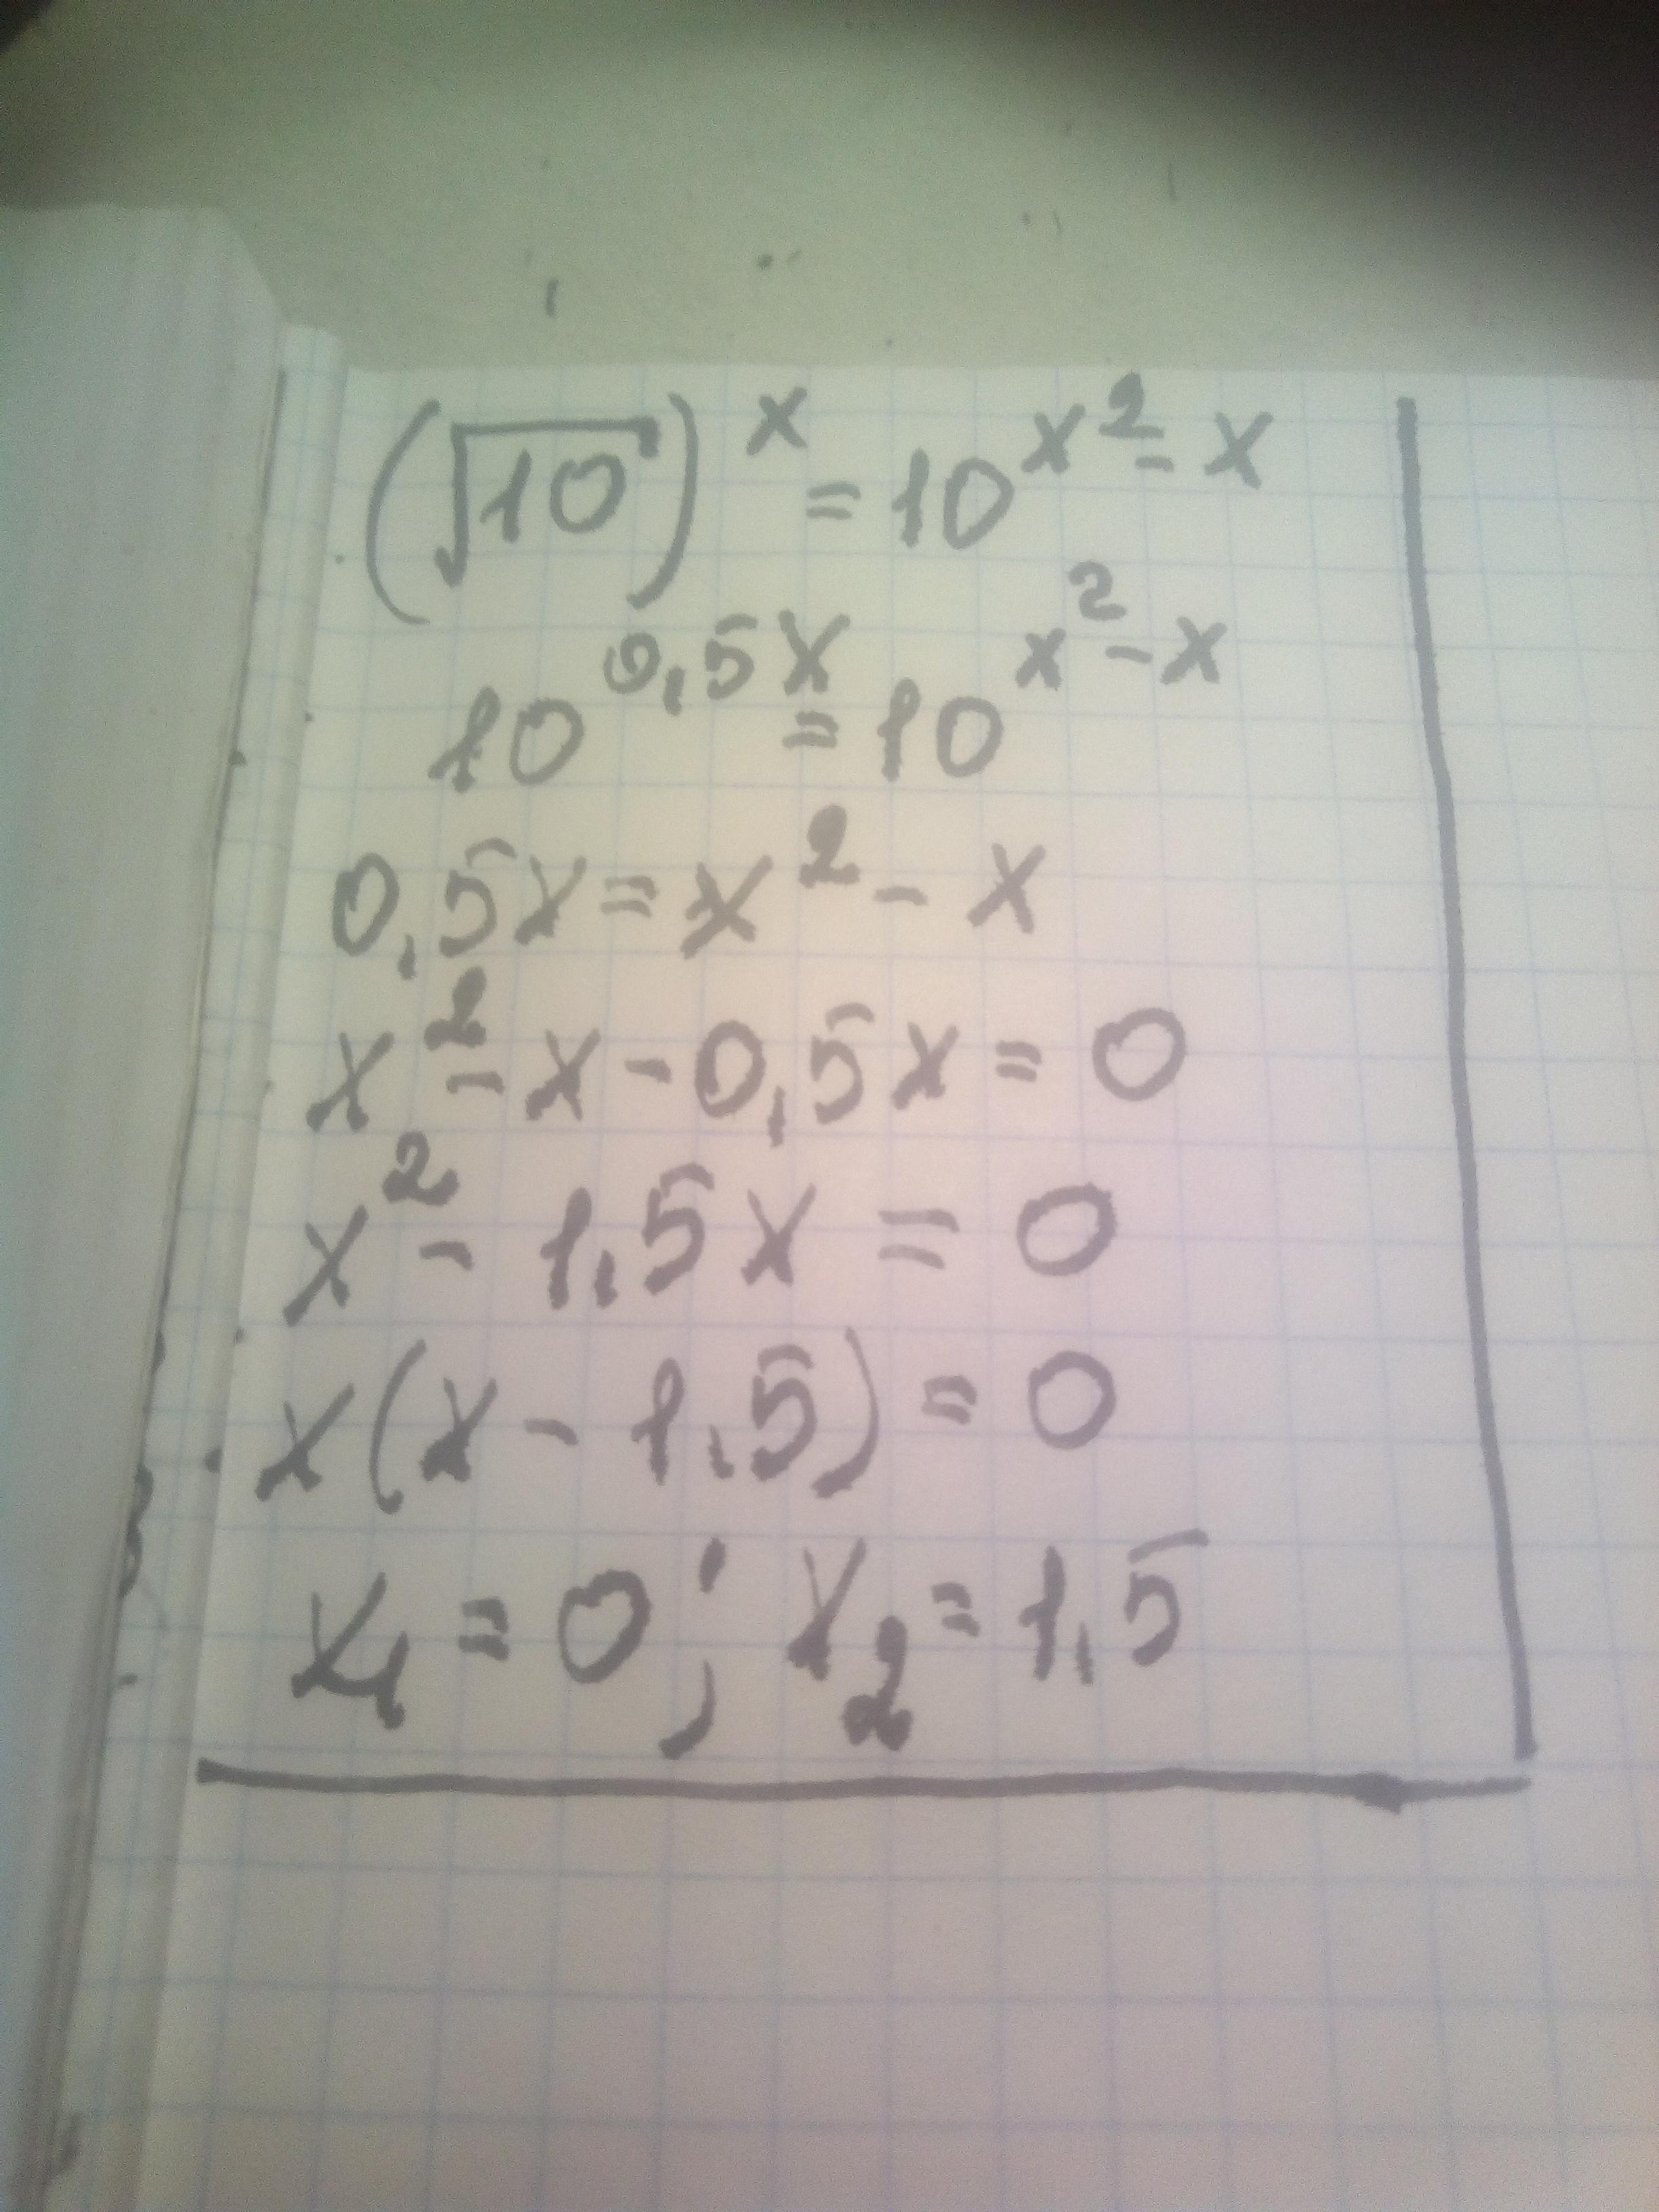 (√10)^x = 10^(x²-x)
10^(0,5x) = 10^(x²-x)
0,5x = x² - x
x² - x - 0,5x = 0
x² - 1,5x = 0
x(x - 1,5) = 0
x₁ = 0; x₂ = 1,5